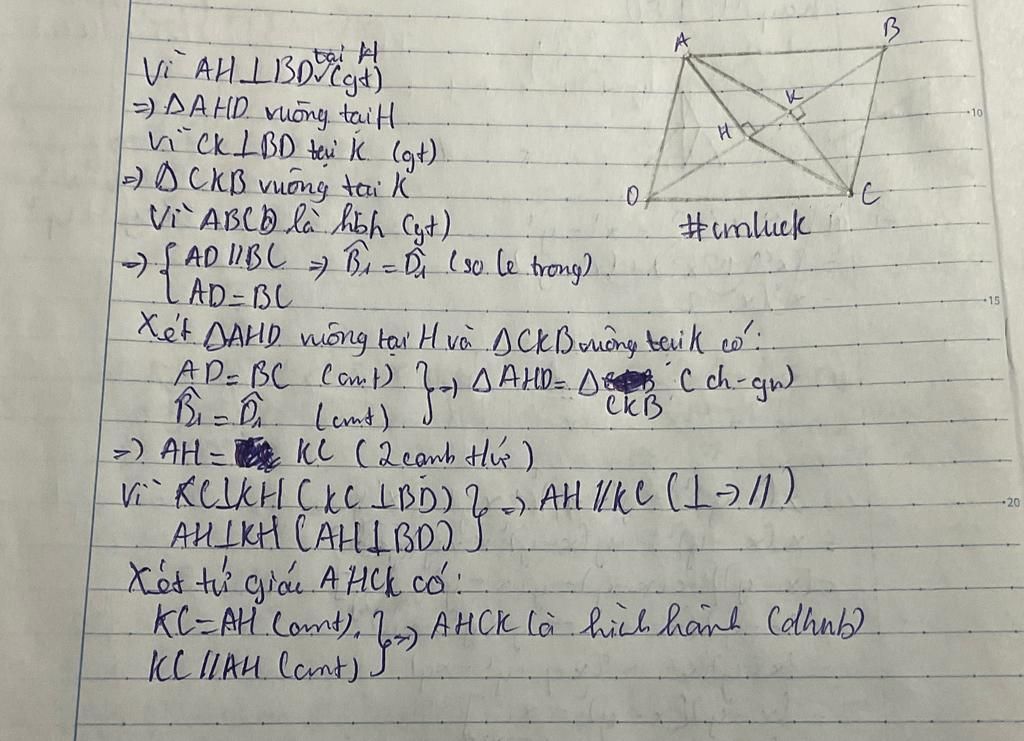 Vì AH⊥BD tại H (gt)
=> ΔAHD vuông tại H
Vì CK⊥BD tại K (gt)
=> ΔCKB vuông tại K
Vì ABCD là hbh (gt)
=> { AD//BC => B̂₁ = D̂₁ (so le trong)
AD=BC
Xét ΔAHD vuông tại H và ΔCKB vuông tại K có:
AD=BC (cmt) } => ΔAHD = Δ CKB (ch-gn)
B̂₁ = D̂₁ (cmt)
=> AH = KC (2 cạnh t/ứ)
Vì KC⊥KH (KC⊥BD) } => AH//KC (⊥→//)
AH⊥KH (AH⊥BD)
Xét tứ giác AHCK có:
KC=AH (cmt). } => AHCK là hình hành (dhnb)
KC//AH (cmt)
A
B
K
H
D
C
#cmluck
10
15
20